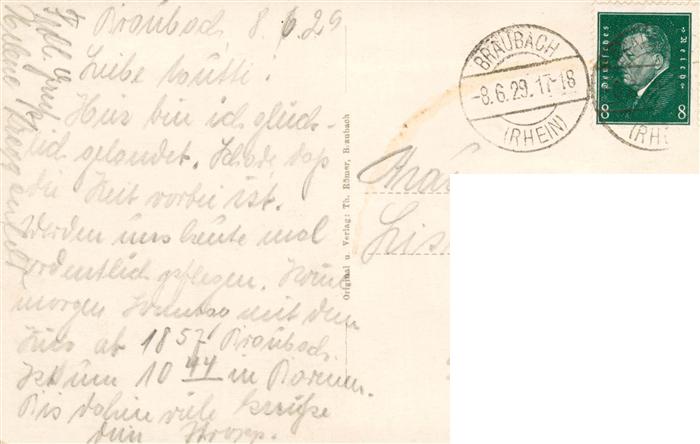 Braubach 8.6.29
Liebe Mutti!
Hier bin ich glück-
lich gelandet. Schade daß
die Zeit vorbei ist.
Werden uns heute mal
ordentlich pflegen. Komme
morgen Sonntag mit dem
Zug ab 18⁵⁷ Braubach.
Ist um 10 44 in Barmen.
Bis dahin viele Grüße
dein
Frdl. Grüße
Original u. Verlag: Th. Römer, Braubach
Frau
BRAUBACH
-8.6.29.17-18
(RHEIN)
Deutsches Reich
8 8
(RHE